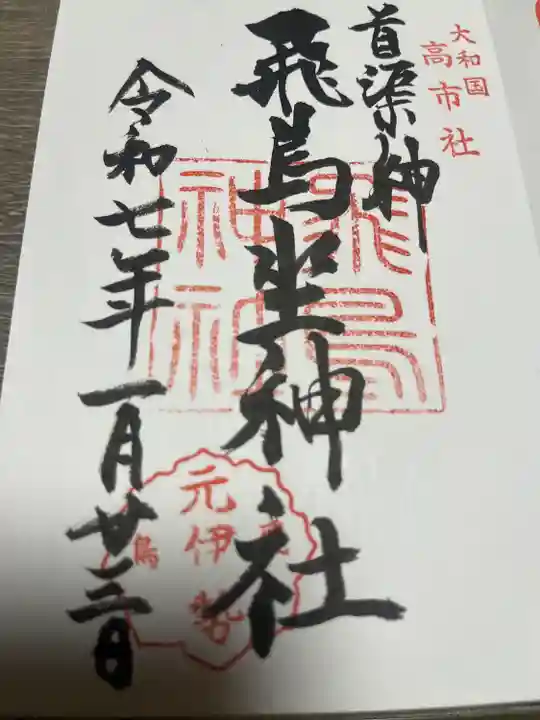 大和国
高市社
首渠神
飛鳥坐神社
飛鳥
神社
元伊勢
飛鳥
令和七年一月廿三日